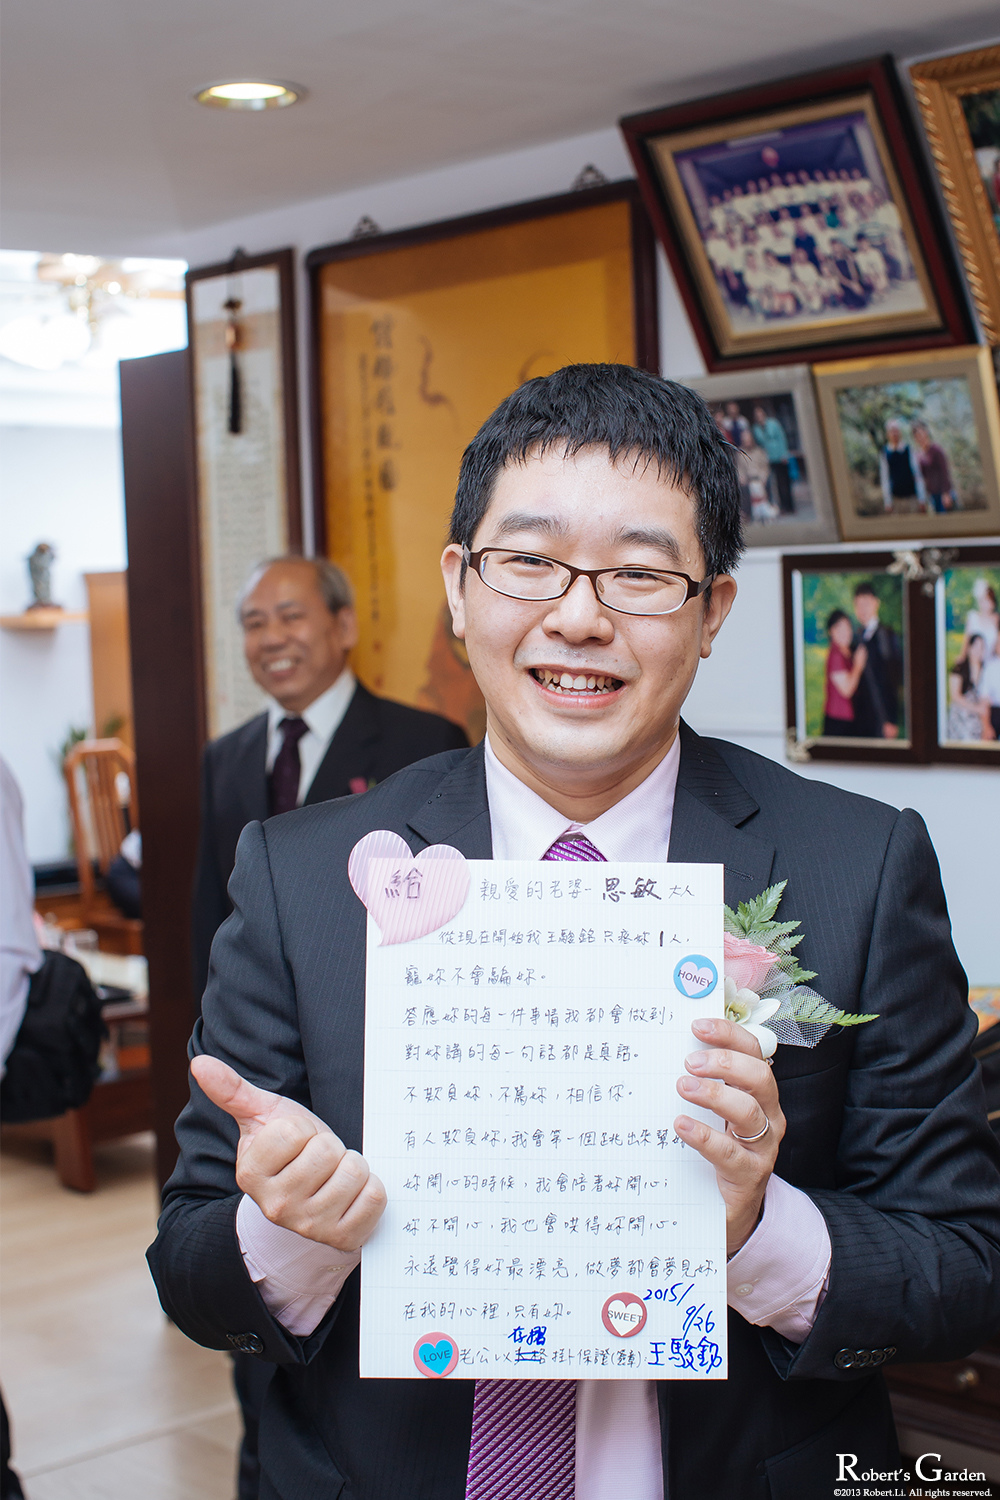 給 親愛的老婆- 思敏 大人
從現在開始我王駿銘只疼妳1人,
寵妳不會騙妳。
HONEY
答應妳的每一件事情我都會做到;
對妳講的每一句話都是真話。
不欺負妳、不罵妳,相信你。
有人欺負妳,我會第一個跳出來幫妳
妳開心的時候,我會陪著妳開心;
妳不開心,我也會哄得妳開心。
永遠覺得妳最漂亮,做夢都會夢見妳,
在我的心裡,只有妳。
SWEET
2015/
9/26
LOVE
存摺
老公以人格掛保證(簽章): 王駿銘
Robert's Garden
©2013 Robert.Li. All rights reserved.